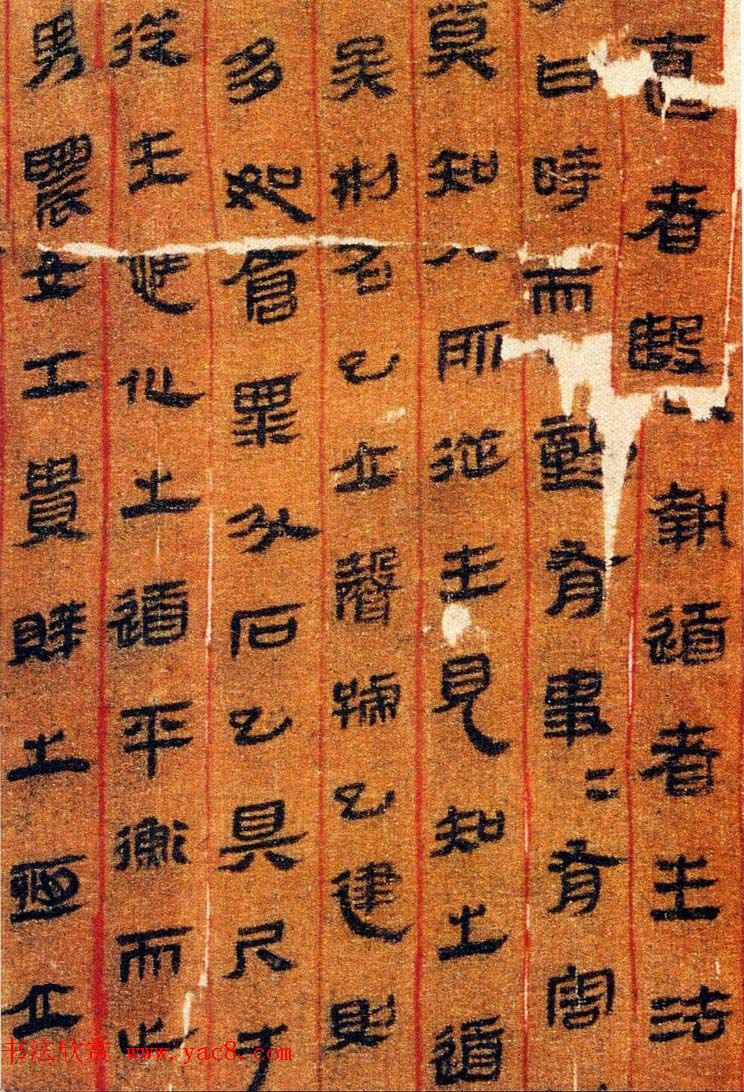 直者殹執道者生法
曰時而動有事=有害
莫知亓所從生見知之道
矣刑名已立聲號已建則
多如倉粟斗石已具尺寸
從生應化之道平衡而止
男農女工貴賤之恒立
书法欣赏 www.yac8.com